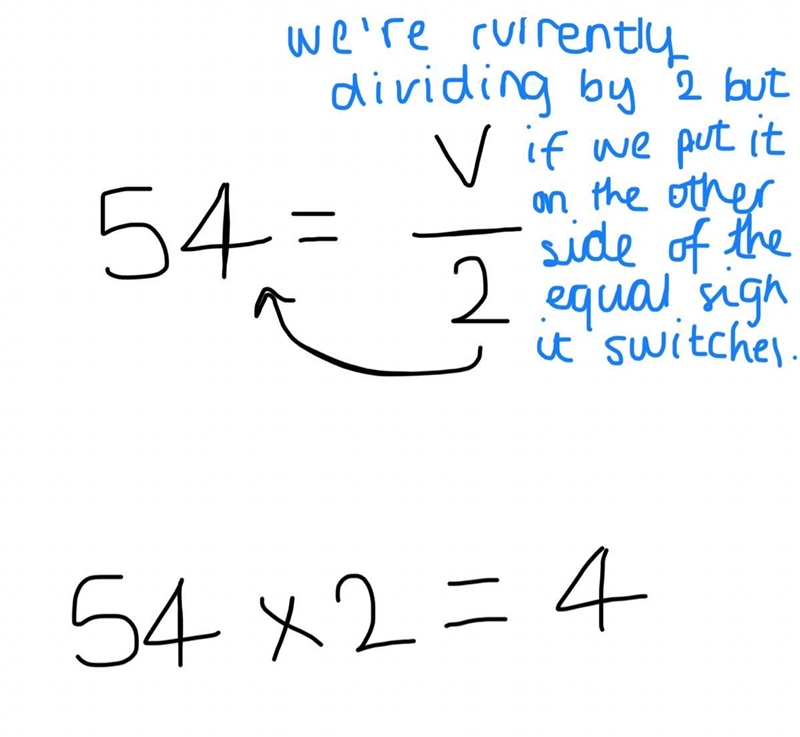 we're currently
dividing by 2 but
if we put it
on the other
side of the
equal sign
it switches.
54 = V
2
54 x 2 = 4